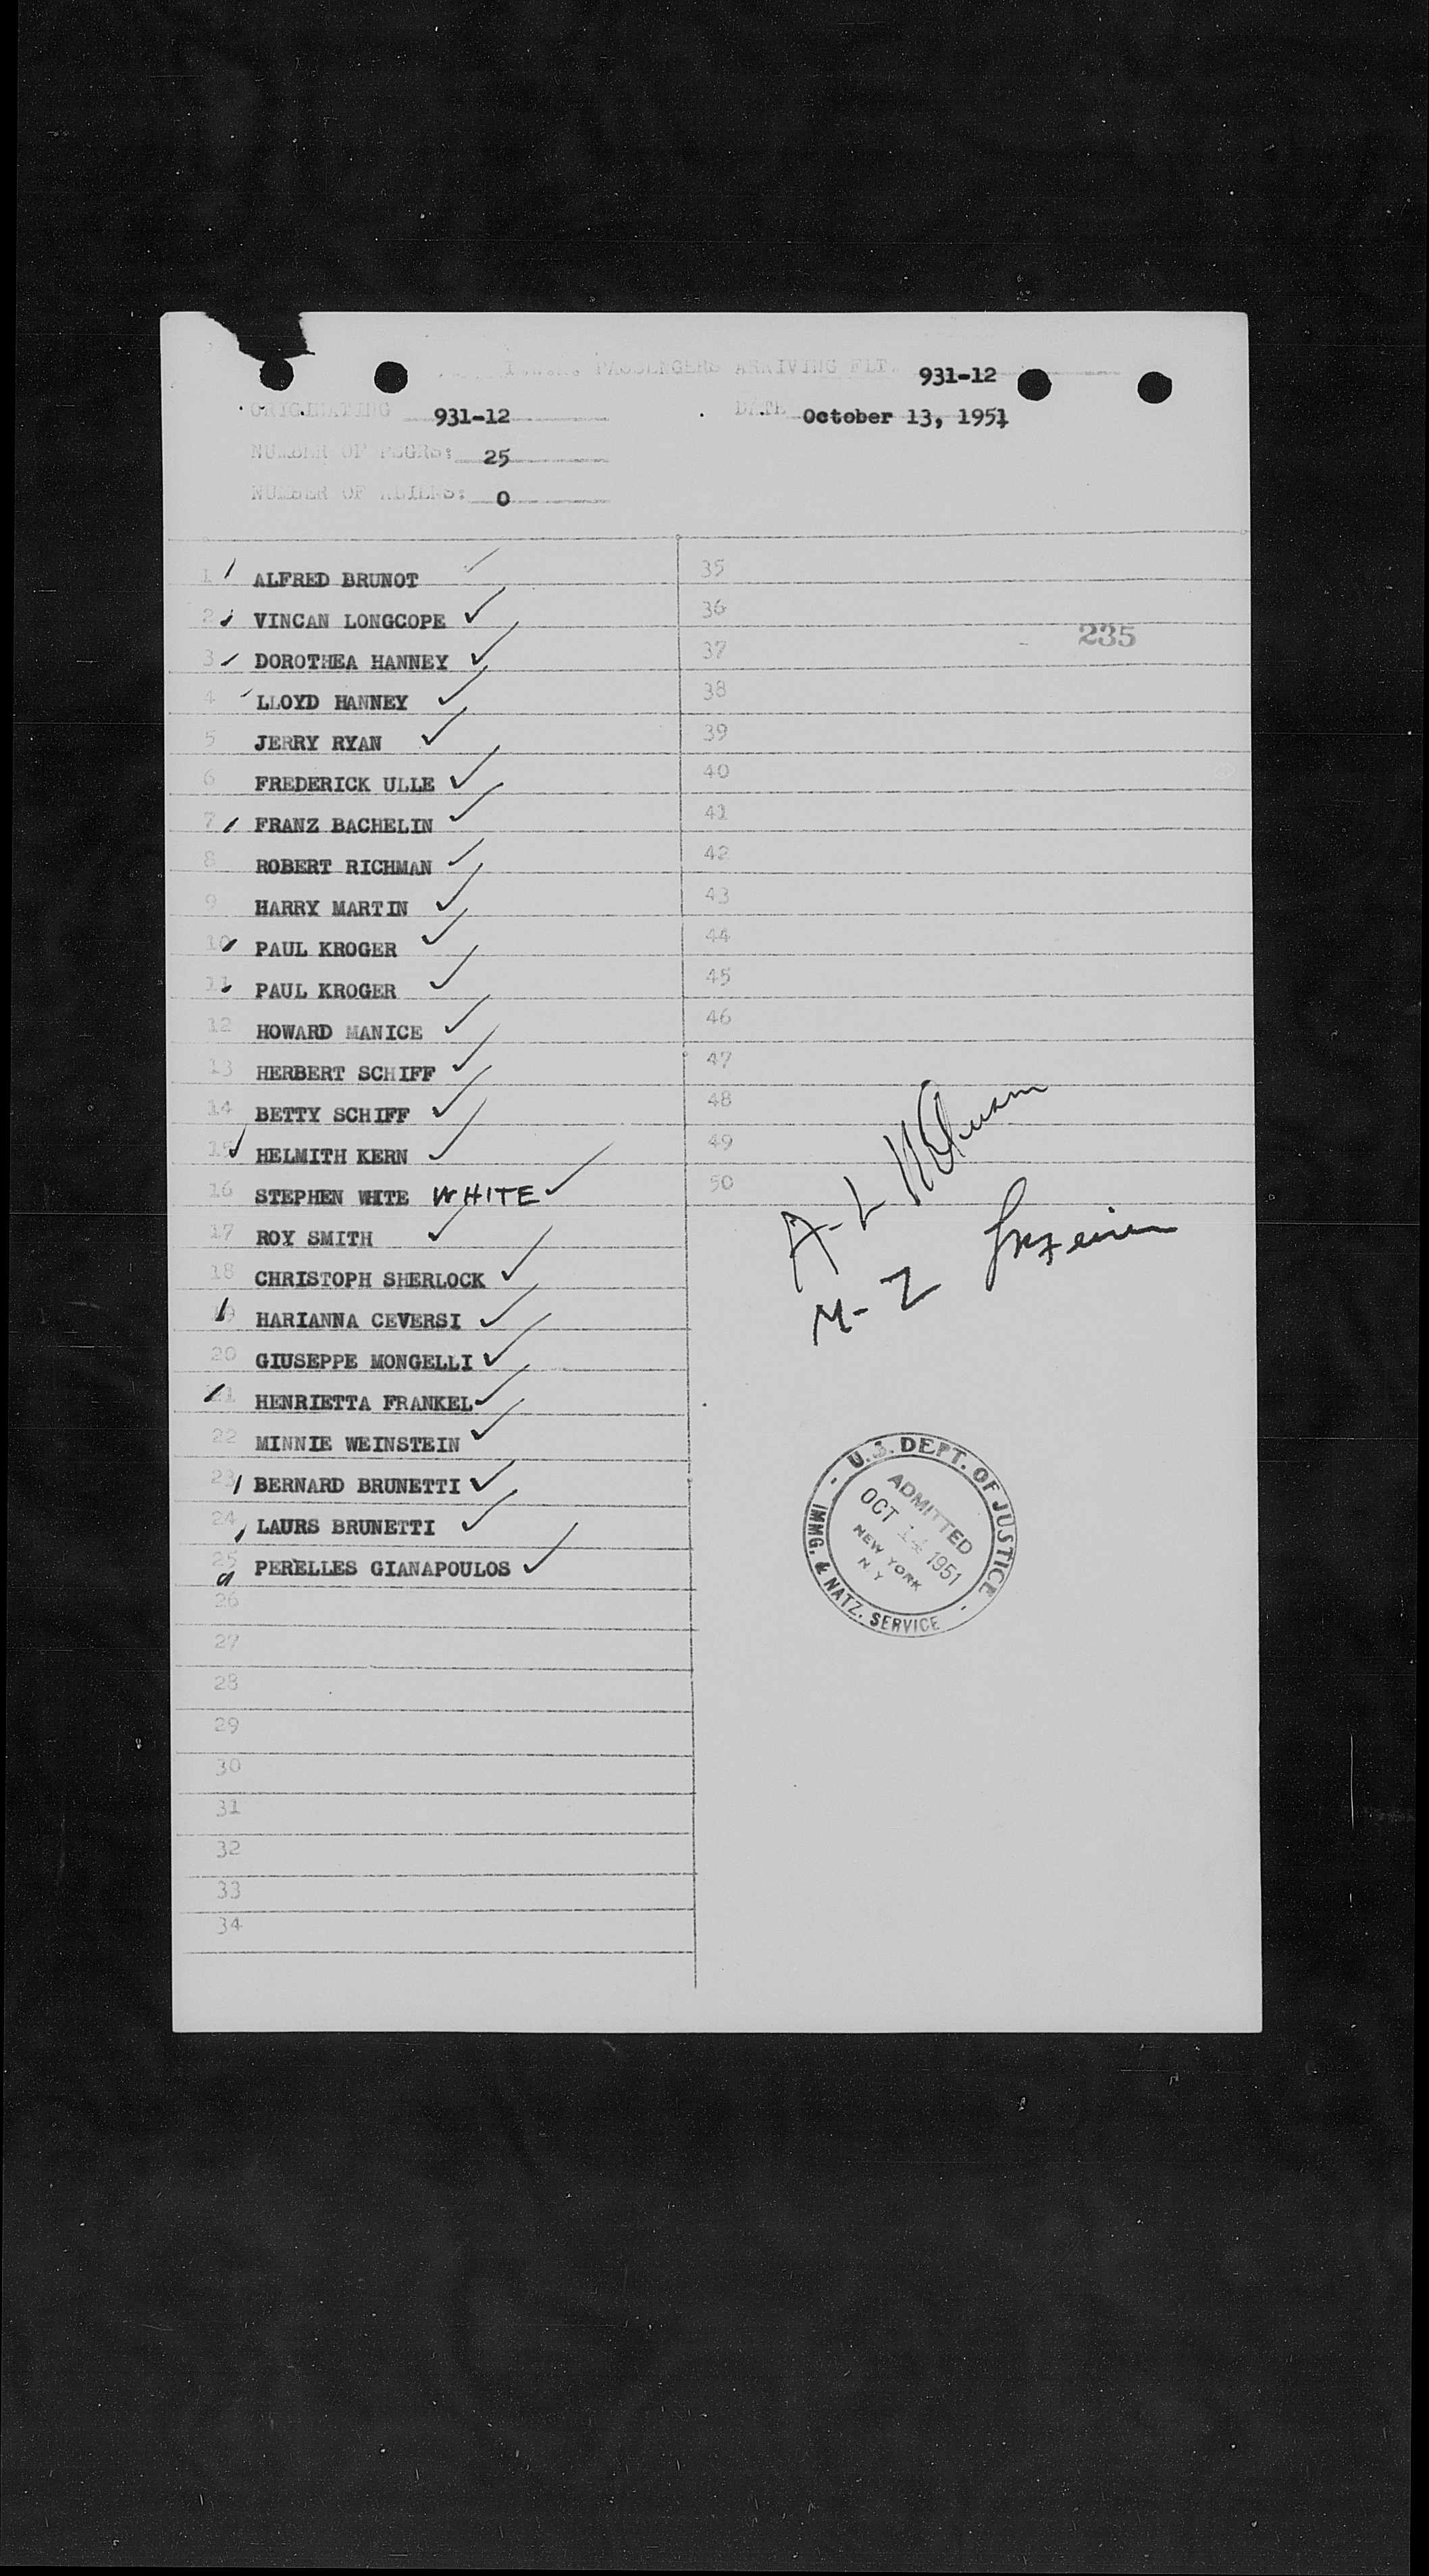 PASSENGERS ARRIVING FLT. 931-12
ORIGINATING 931-12 DATE October 13, 1951
NUMBER OF PSGRS: 25
NUMBER OF ALIENS: 0
1 ALFRED BRUNOT
2 VINCAN LONGCOPE
3 DOROTHEA HANNEY
4 LLOYD HANNEY
5 JERRY RYAN
6 FREDERICK ULLE
7 FRANZ BACHELIN
8 ROBERT RICHMAN
9 HARRY MARTIN
10 PAUL KROGER
11 PAUL KROGER
12 HOWARD MANICE
13 HERBERT SCHIFF
14 BETTY SCHIFF
15 HELMITH KERN
16 STEPHEN WHITE WHITE
17 ROY SMITH
18 CHRISTOPH SHERLOCK
19 HARIANNA CEVERSI
20 GIUSEPPE MONGELLI
21 HENRIETTA FRANKEL
22 MINNIE WEINSTEIN
23 BERNARD BRUNETTI
24 LAURS BRUNETTI
25 PERELLES GIANAPOULOS
26
27
28
29
30
31
32
33
34
35
36
235
37
38
39
40
41
42
43
44
45
46
47
48
49
50
A-L
M-Z
U.S. DEPT. OF JUSTICE
ADMITTED
OCT 14 1951
NEW YORK
N.Y
IMMG. & NATZ. SERVICE